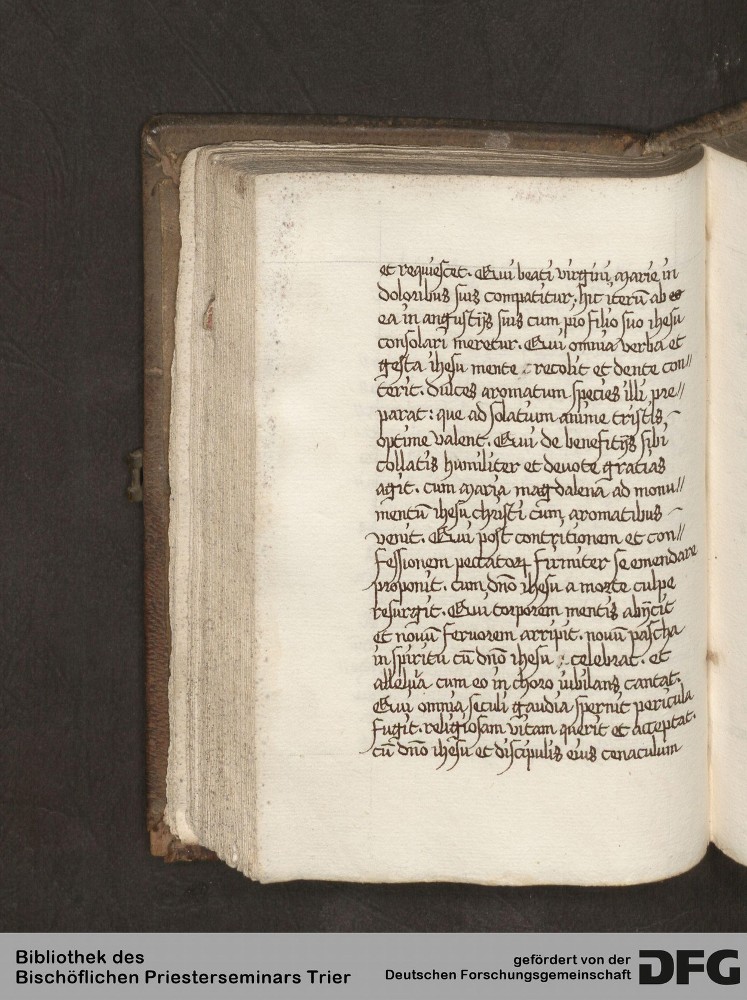 et requiescet. Qui beati virginis marie in
doloribus suis compatitur, hic iterū ab eo
ea in angustijs suis cum pio filio suo ihesu
consolari meretur. Qui omnia verba et
gesta ihesu mente recolit et dente con//
terit. dulces aromatum species illi pre//
parat: que ad solatium anime tristis
optime valent. Qui de benefitijs sibi
collatis humiliter et deuote gratias
agit. cum maria magdalena ad monu//
mentū ihesu christi cum aromatibus
venit. Qui post contritionem et con//
fessionem peccatoꝝ firmiter se emendare
proponit. cum dn̄o ihesu a morte culpe
resurgit. Qui torporem mentis abijcit
et nouū feruorem arripit. nouū pascha
in spiritu cū dn̄o ihesu celebrat. et
alleluia cum eo in choro iubilans cantat.
Qui omnia seculi gaudia spernit pericula
fugit. religiosam vitam querit et acceptat.
cū dn̄o ihesu et discipulis eius cenaculum
Bibliothek des
Bischöflichen Priesterseminars Trier
gefördert von der
Deutschen Forschungsgemeinschaft
DFG